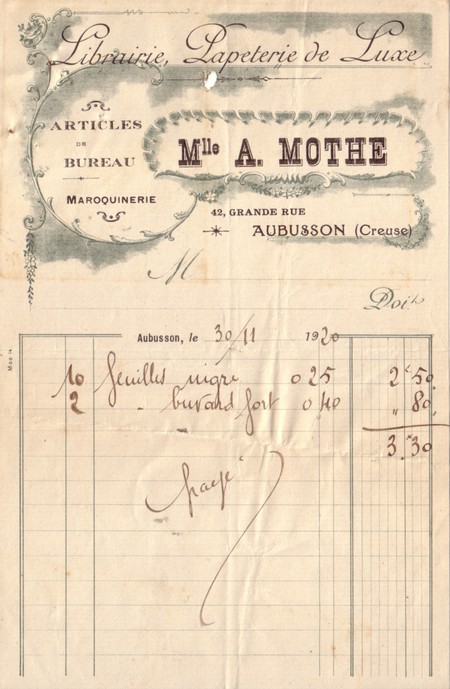 Librairie, Papeterie de Luxe
ARTICLES
DE
BUREAU
MAROQUINERIE
Mlle A. MOTHE
42, GRANDE RUE
AUBUSSON (Creuse)
M
Doit
Aubusson, le 30/11 1920
10 feuilles 0 25 2f 50
2 - buvard fort 0 40 " 80
3.30
payé